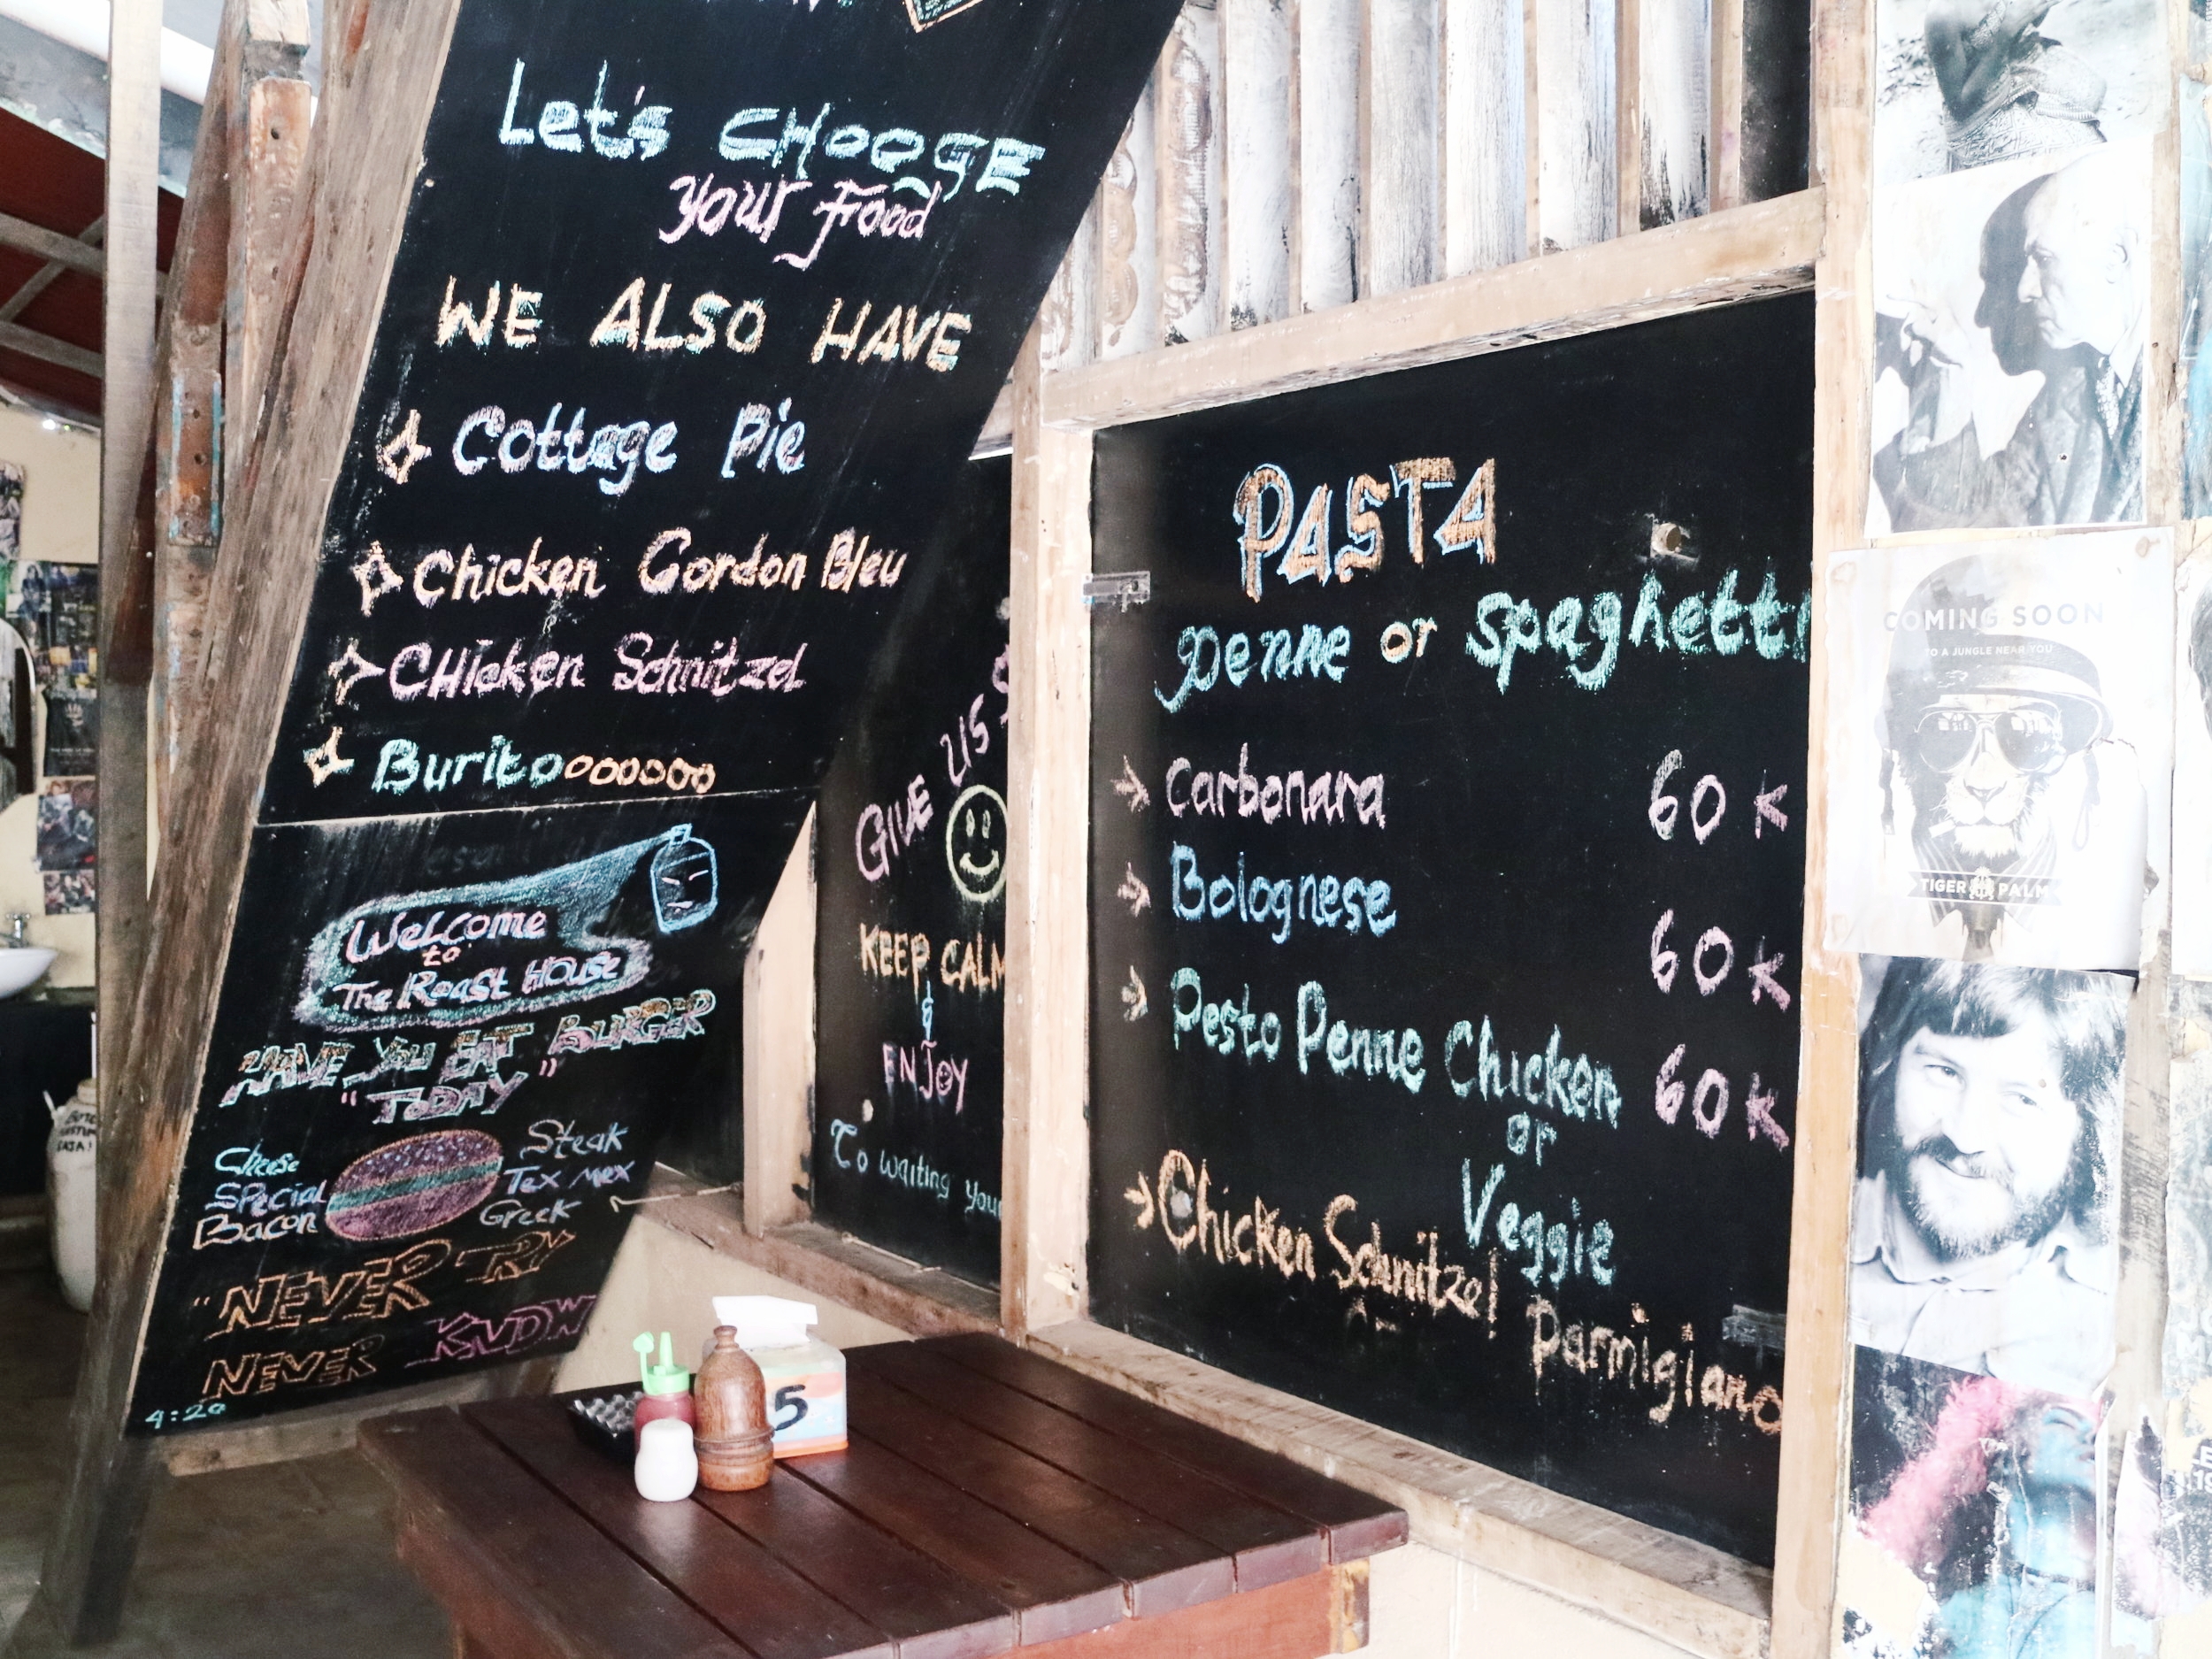 Let's CHOOSE
your food
WE ALSO HAVE
Cottage Pie
Chicken Gordon Bleu
CHicken Schnitzel
Buritooooooo
Welcome
to
The Roast House
HAVE YOU EAT BURGER
"TODAY"
Cheese
SPecial
Bacon
Steak
Tex Mex
Greek
"NEVER TRY
NEVER KNOW
4:20
GIVE US S
KEEP CALM
&
ENJOY
To waiting your
PASTA
penne or spaghetti
Carbonara 60 K
Bolognese 60 K
Pesto Penne Chicken 60 K
or
Veggie
Chicken Schnitzel Parmigiano
5
COMING SOON
TO A JUNGLE NEAR YOU
TIGER PALM